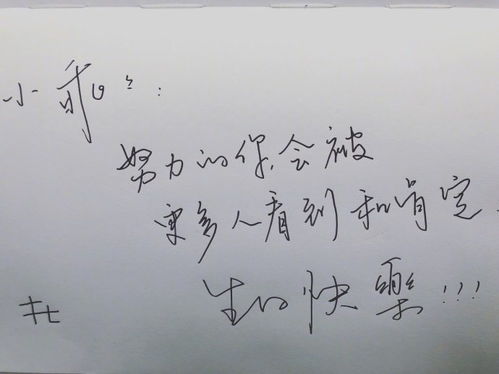 小乖々:
努力的你,会被
更多人看到和肯定.
生日快樂!!!